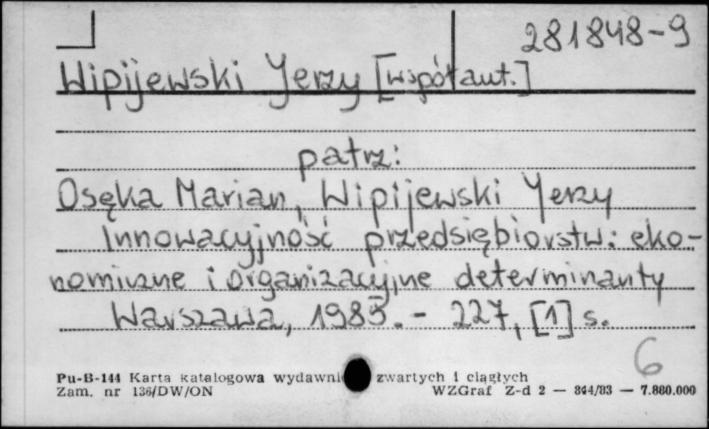 281848-9
Wipijewski Jerzy [współaut.]
patrz:
Osęka Marian, Wipijewski Jerzy
Innowacyjność przedsiębiorstw: eko-
nomiczne i organizacyjne determinanty
Warszawa, 1985. - 227, [1] s.
6
Pu-B-144 Karta katalogowa wydawni zwartych i ciągłych
Zam. nr 136/DW/ON WZGraf Z-d 2 — 844/83 — 7.880.000